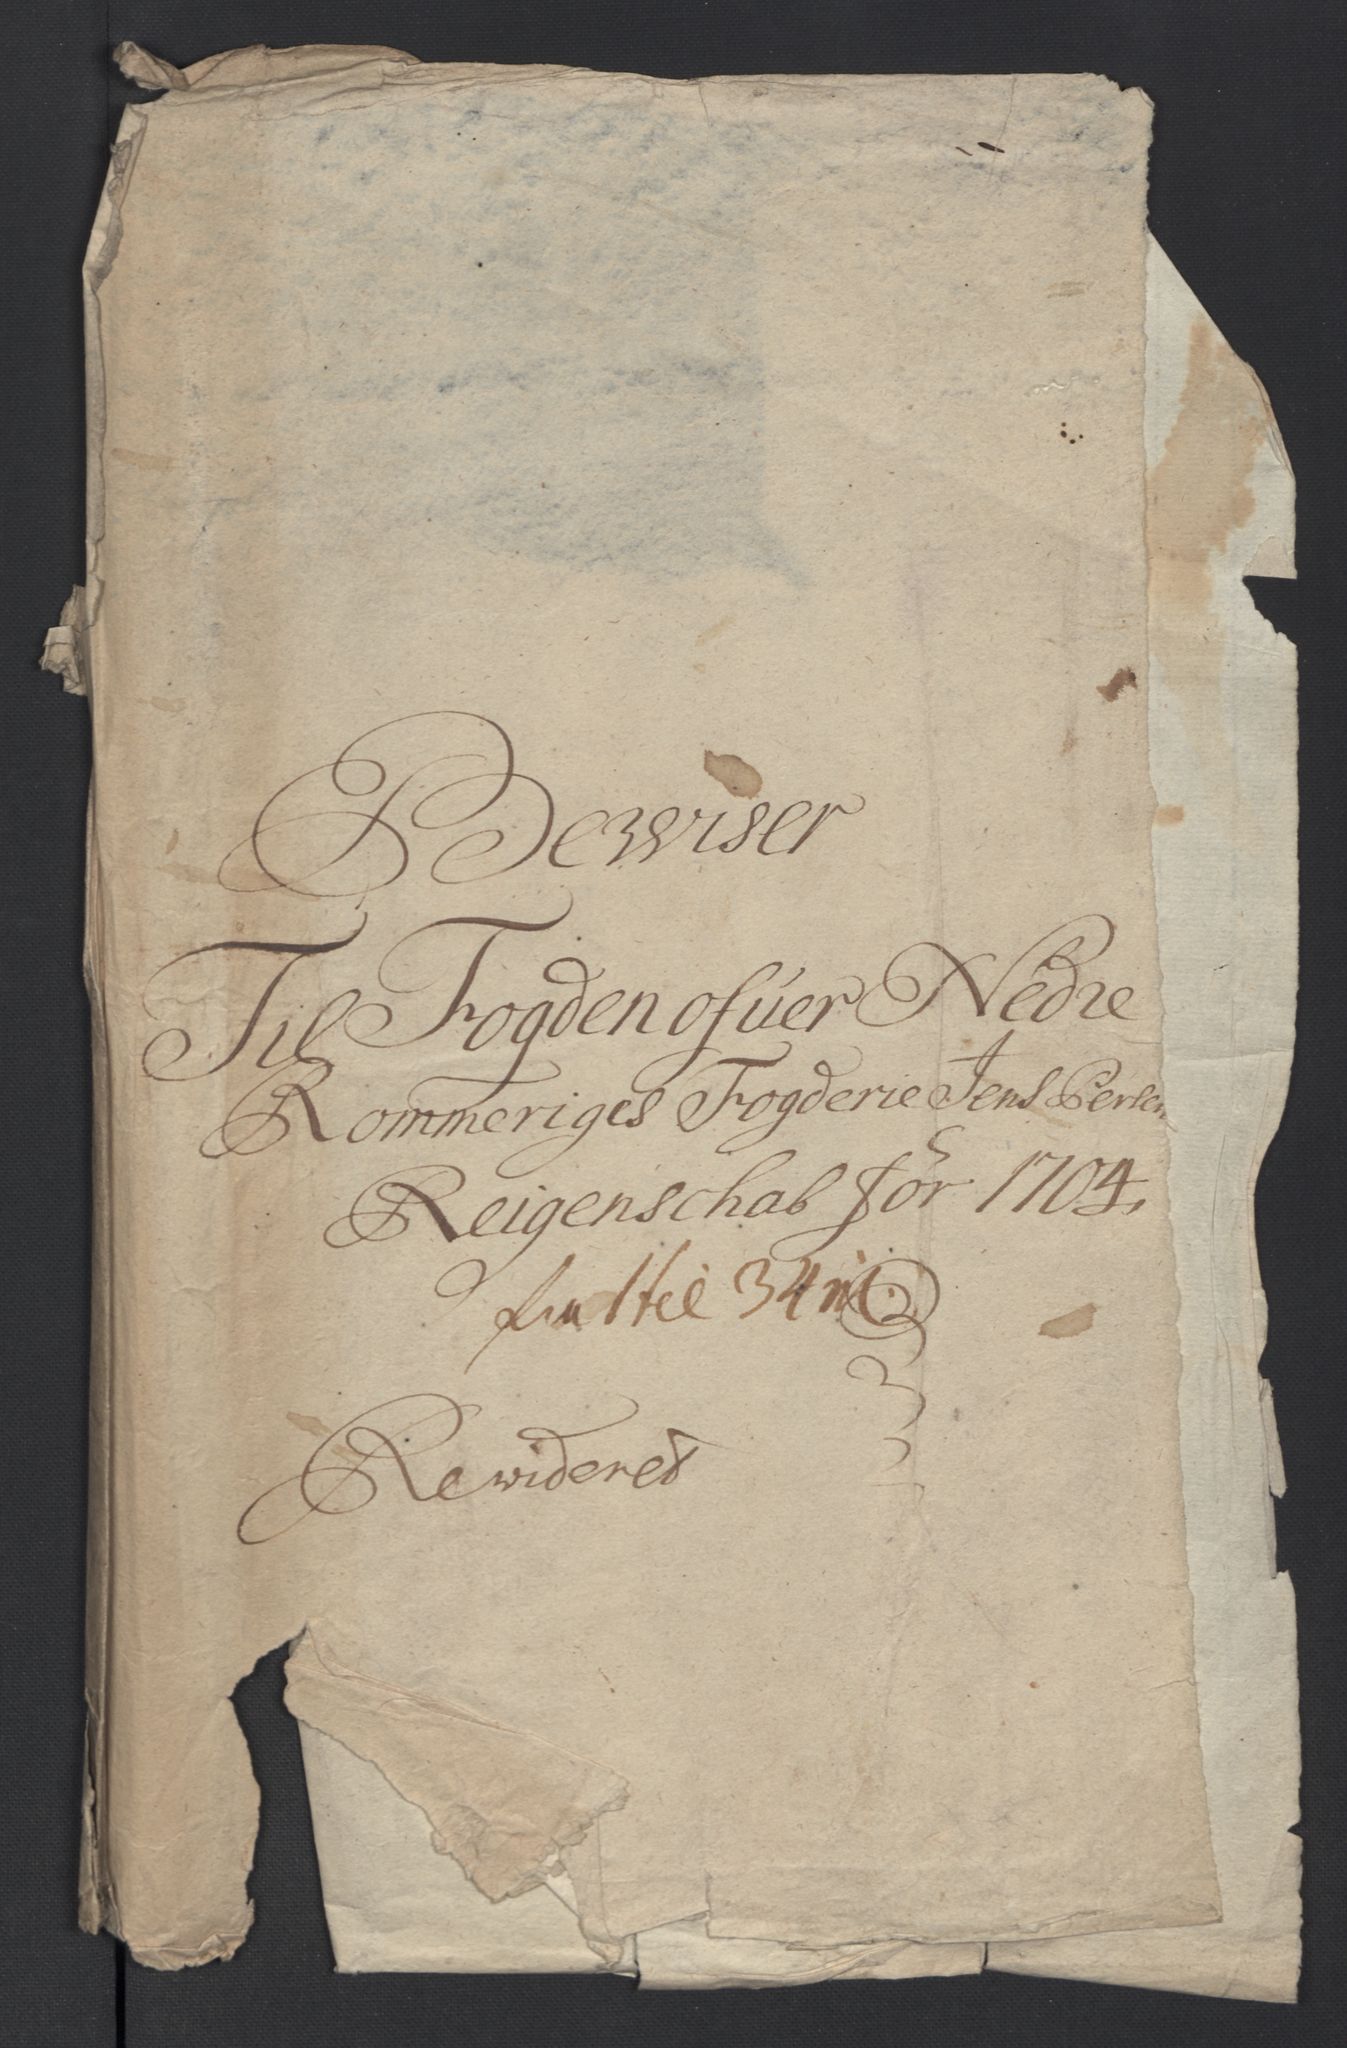 Bewiser
Til Fogden ofúer Nedre
Rommeriges Fogderie Jens Persen
Reigenschab för 1704
fra 1 til 34
Rewideret